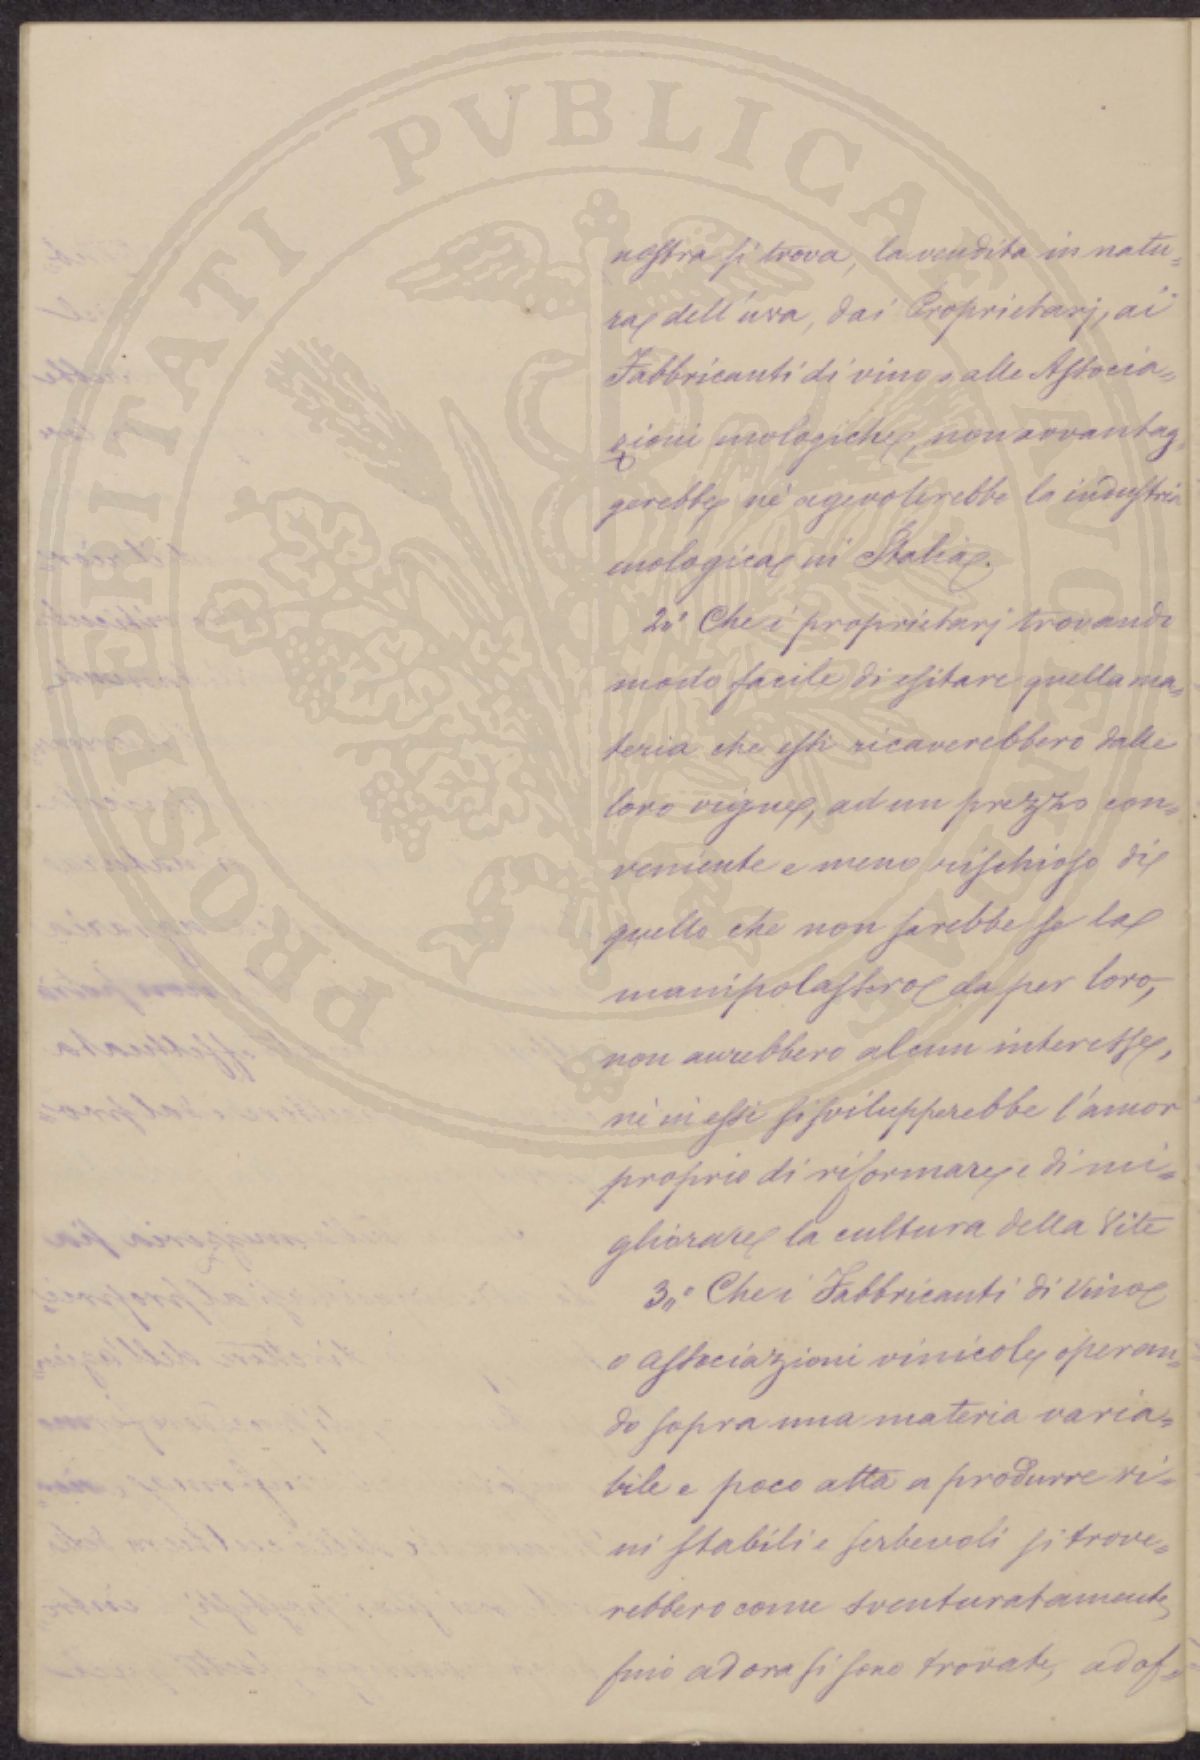 PROSPERITATI PVBLICAE
nostra si trova, la vendita in natu=
ra dell'uva, dai Proprietarj, ai
Fabbricanti di vino, o alle Associa=
zioni enologiche, non avvantag=
gerebbe nè agevolerebbe la industria
enologica in Italia.
2º Che i proprietarj trovando
modo facile di esitare quella ma=
teria che essi ricaverebbero dalle
loro vigne, ad un prezzo con=
veniente e meno rischioso di
quello che non sarebbe se la
manipolassero da per loro,
non avrebbero alcun interesse,
nè in essi si svilupperebbe l'amor
proprio di riformare e di mi=
gliorare la cultura della Vite
3º Che i Fabbricanti di Vino
o associazioni vinicole operan=
do sopra una materia varia=
bile e poco atta a produrre vi=
ni stabili e serbevoli si trove=
rebbero come sventuratamente,
fino ad ora si sono trovate, ad of=